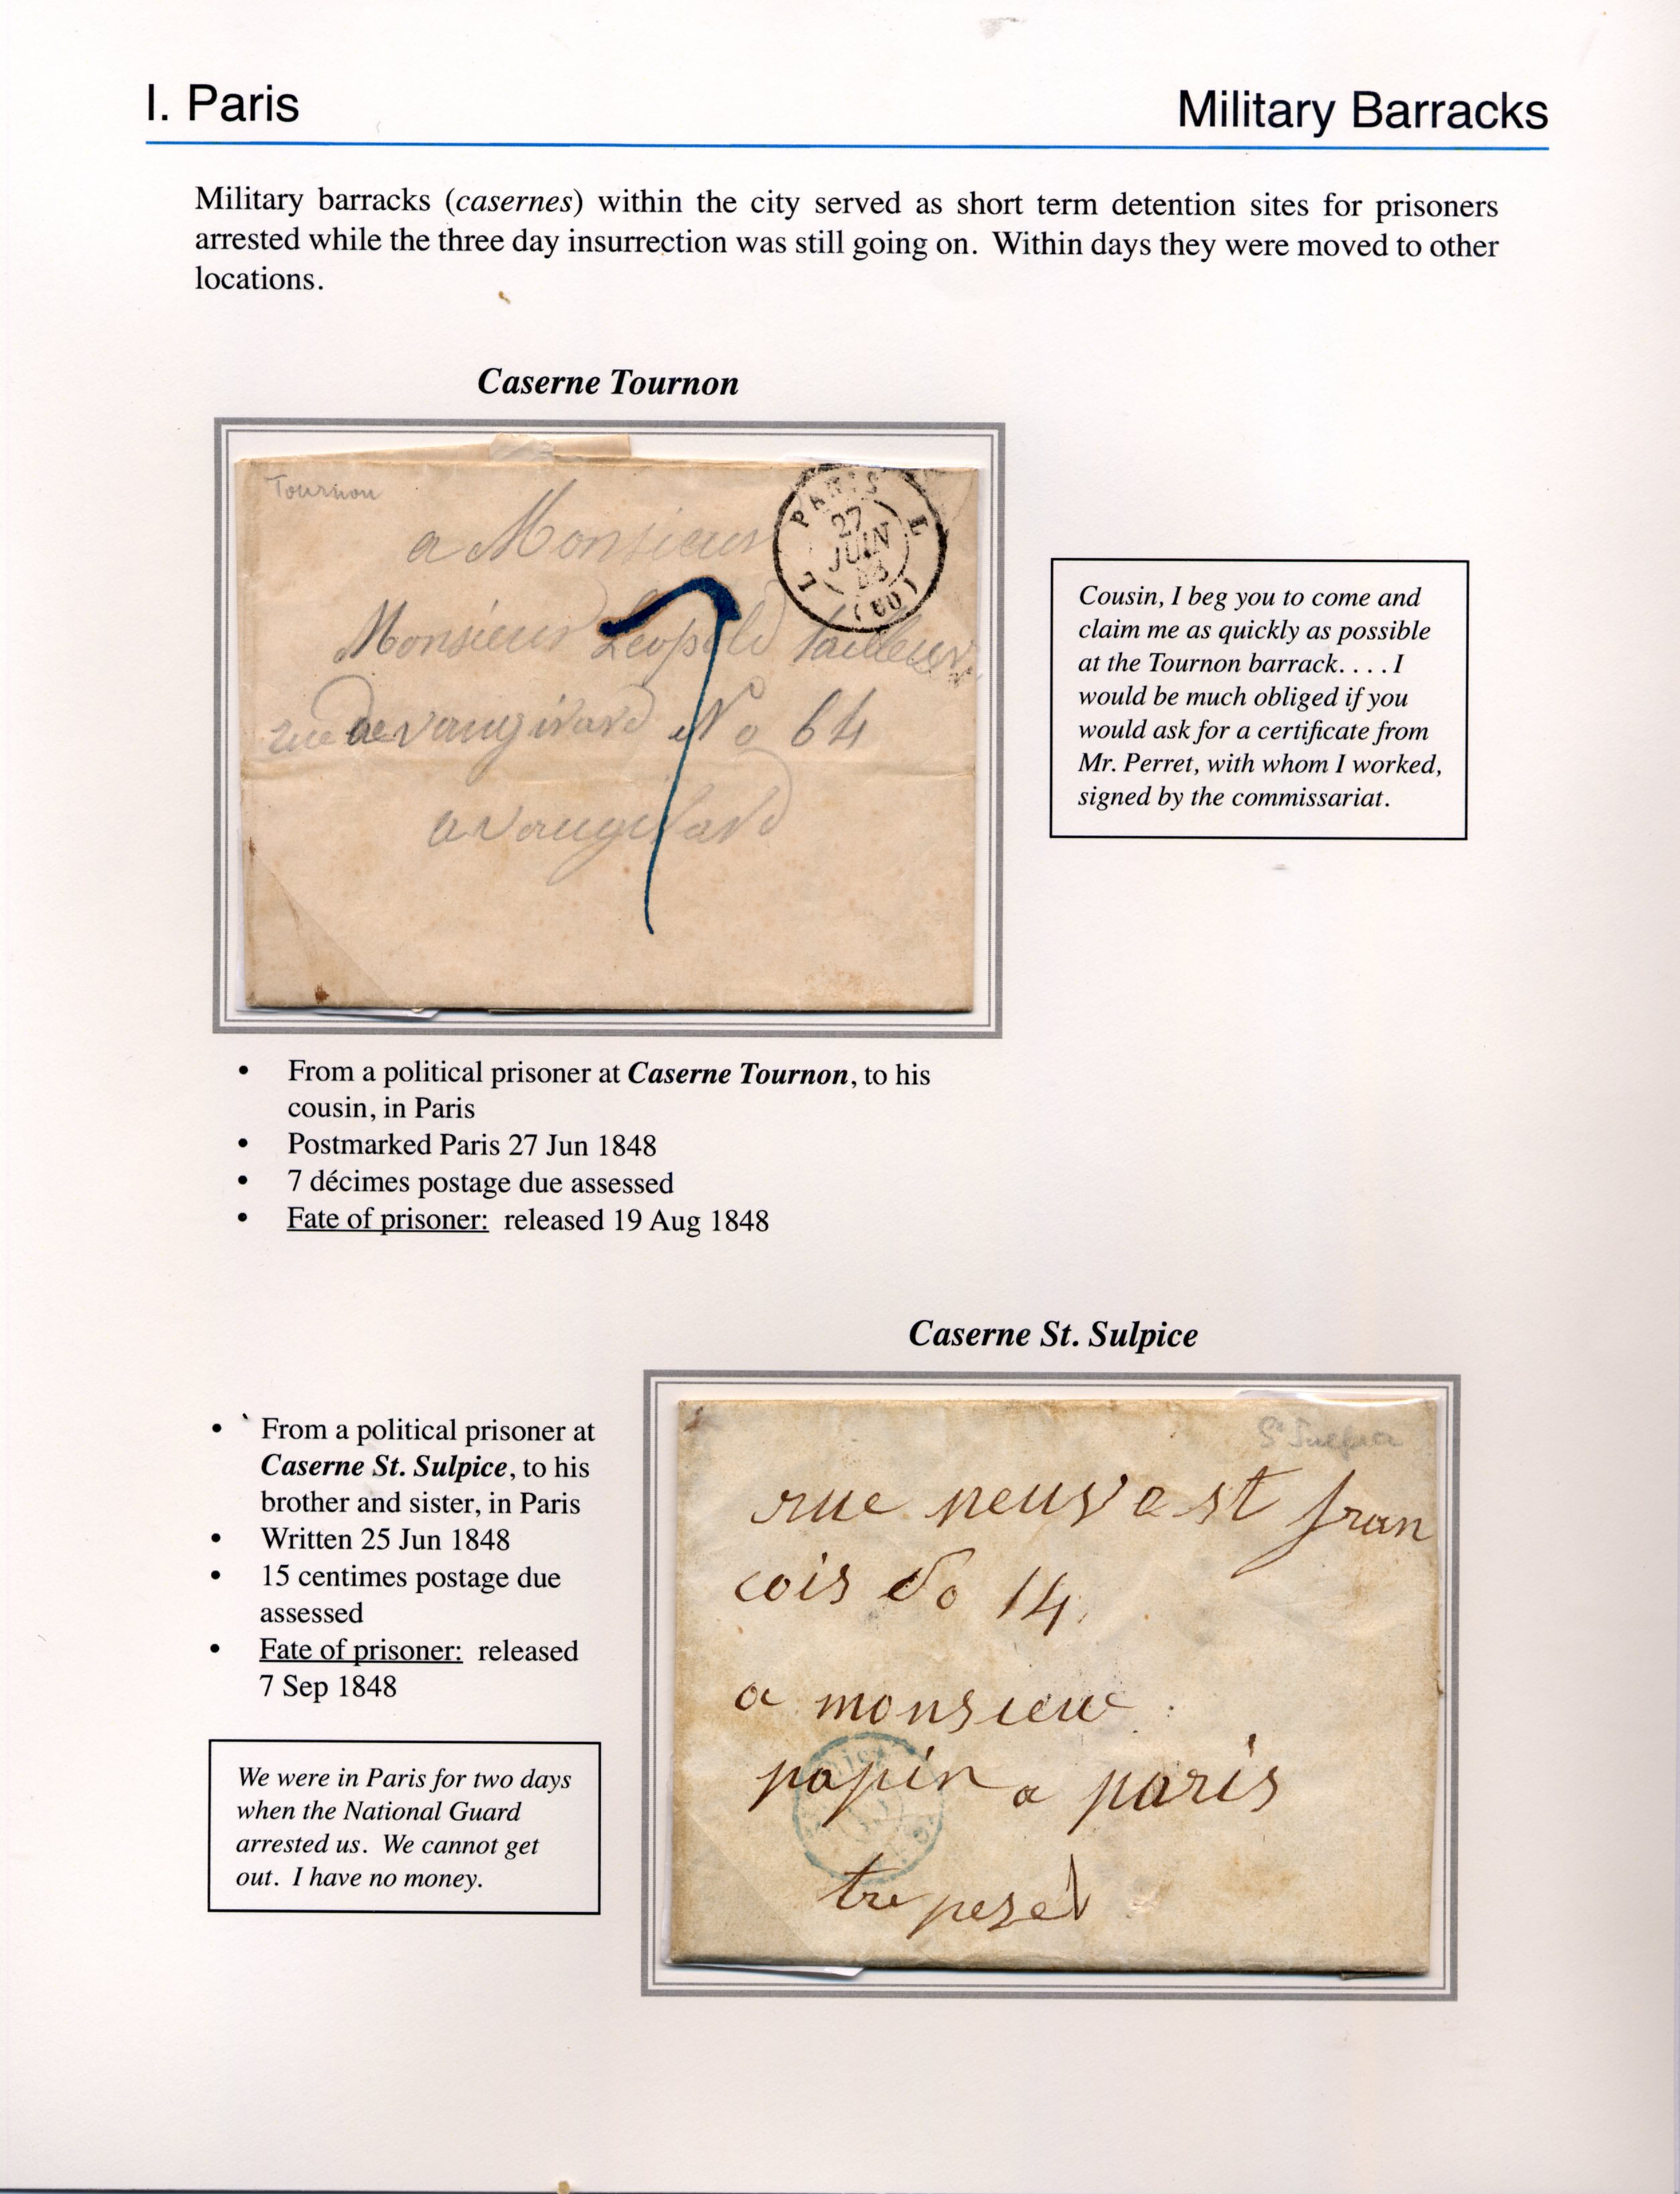 I. Paris
Military Barracks
Military barracks (casernes) within the city served as short term detention sites for prisoners
arrested while the three day insurrection was still going on. Within days they were moved to other
locations.
Caserne Tournon
Tournon
a Monsieur
Monsieur Leopold tailleur
rue de vaugirard No 64
a vaugirard
PARIS
27
JUIN
48
(60)
L L
Cousin, I beg you to come and
claim me as quickly as possible
at the Tournon barrack. . . . I
would be much obliged if you
would ask for a certificate from
Mr. Perret, with whom I worked,
signed by the commissariat.
7
• From a political prisoner at Caserne Tournon, to his
cousin, in Paris
• Postmarked Paris 27 Jun 1848
• 7 décimes postage due assessed
• Fate of prisoner: released 19 Aug 1848
Caserne St. Sulpice
• From a political prisoner at
Caserne St. Sulpice, to his
brother and sister, in Paris
• Written 25 Jun 1848
• 15 centimes postage due
assessed
• Fate of prisoner: released
7 Sep 1848
We were in Paris for two days
when the National Guard
arrested us. We cannot get
out. I have no money.
St Sulpice
rue neuve st fran
cois No 14
a monsieur
papin a paris